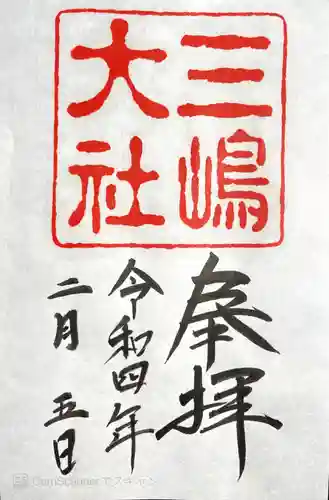 三嶋
大社
奉拝
令和四年
二月 五日
CamScannerでスキャン